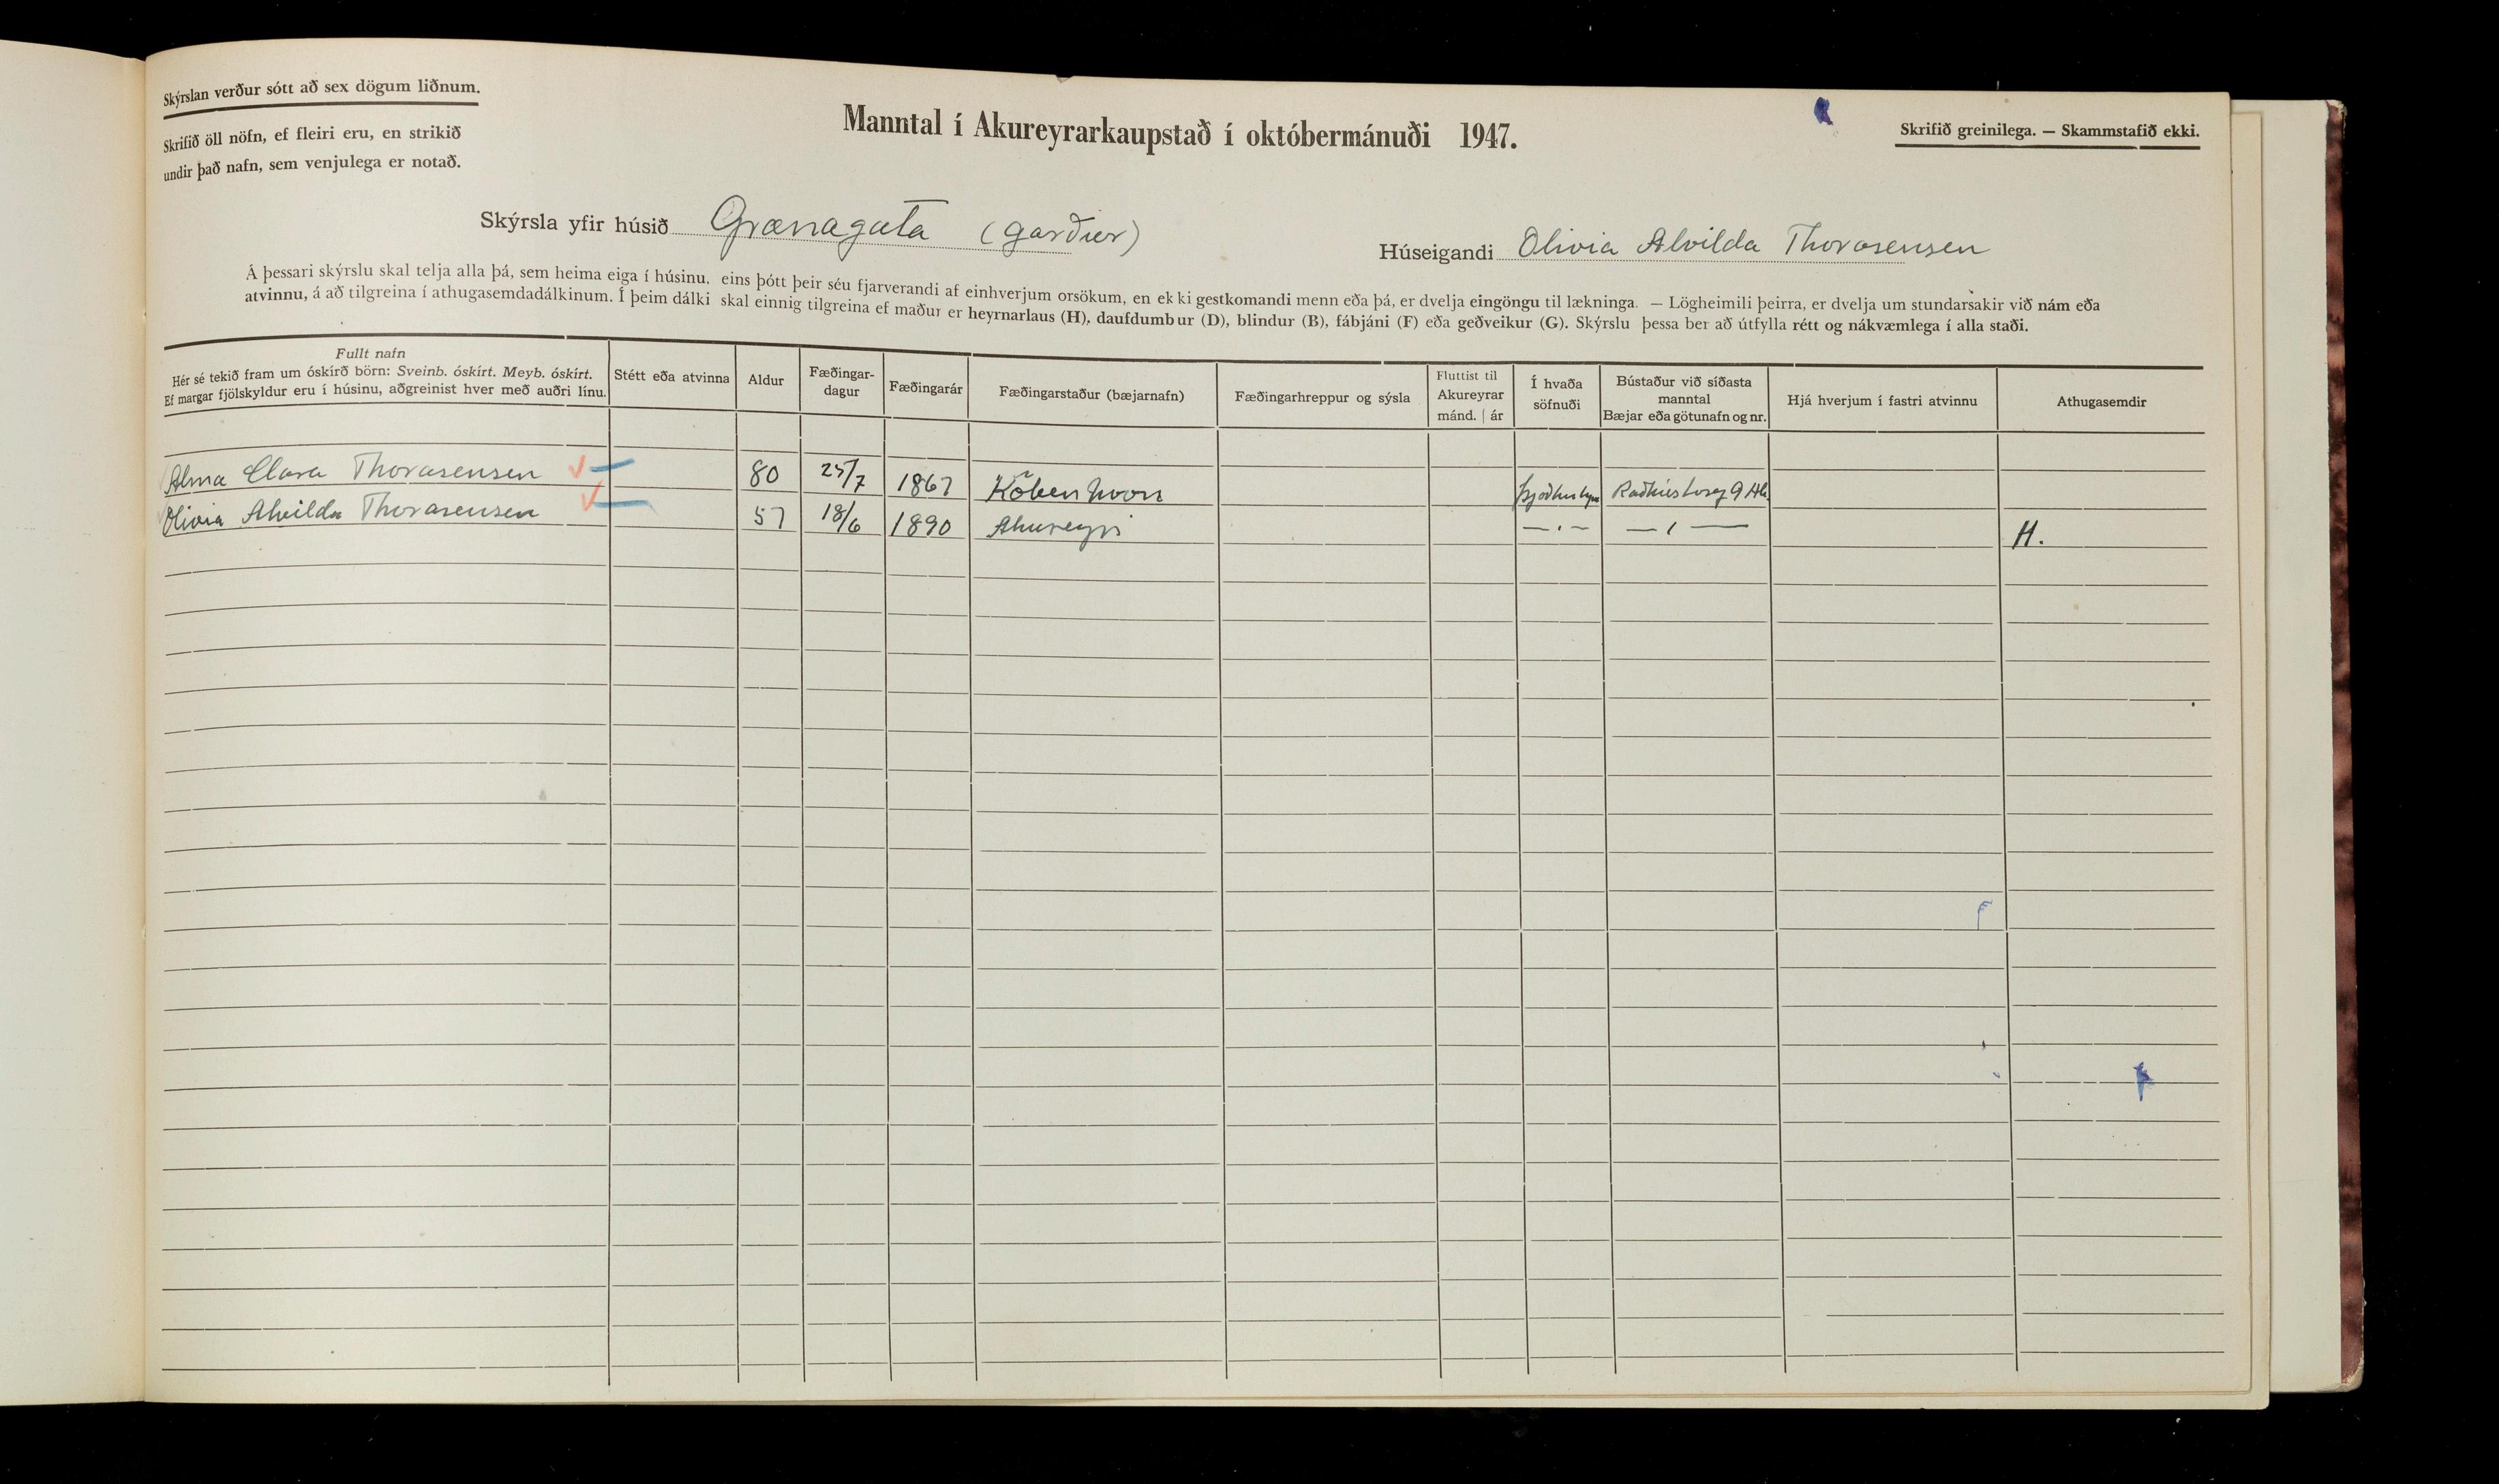 Skýrslan verður sótt að sex dögum liðnum.
Skrifið öll nöfn, ef fleiri eru, en strikið
undir það nafn, sem venjulega er notað.
Manntal í Akureyrarkaupstað í októbermánuði 1947.
Skrifið greinilega. — Skammstafið ekki.
Skýrsla yfir húsið Grænagata (garður)
Húseigandi Olivia Alvilda Thorarensen
Á þessari skýrslu skal telja alla þá, sem heima eiga í húsinu, eins þótt þeir séu fjarverandi af einhverjum orsökum, en ekki gestkomandi menn eða þá, er dvelja eingöngu til lækninga. — Lögheimili þeirra, er dvelja um stundarsakir við nám eða
atvinnu, á að tilgreina í athugasemdadálkinum. Í þeim dálki skal einnig tilgreina ef maður er heyrnarlaus (H), daufdumbur (D), blindur (B), fábjáni (F) eða geðveikur (G). Skýrslu þessa ber að útfylla rétt og nákvæmlega í alla staði.
Fullt nafn
Hér sé tekið fram um óskírð börn: Sveinb. óskírt. Meyb. óskírt.
Ef margar fjölskyldur eru í húsinu, aðgreinist hver með auðri línu.
Stétt eða atvinna
Aldur
Fæðingar-
dagur
Fæðingarár
Fæðingarstaður (bæjarnafn)
Fæðingarhreppur og sýsla
Fluttist til
Akureyrar
mánd. | ár
Í hvaða
söfnuði
Bústaður við síðasta
manntal
Bæjar eða götunafn og nr.
Hjá hverjum í fastri atvinnu
Athugasemdir
Alma Clara Thorarensen 80 25/7 1867 Köbenhvon 9 Ak.
Olivia Alvilda Thorarensen 57 18/6 1890 Akureyri — " — — " — H.